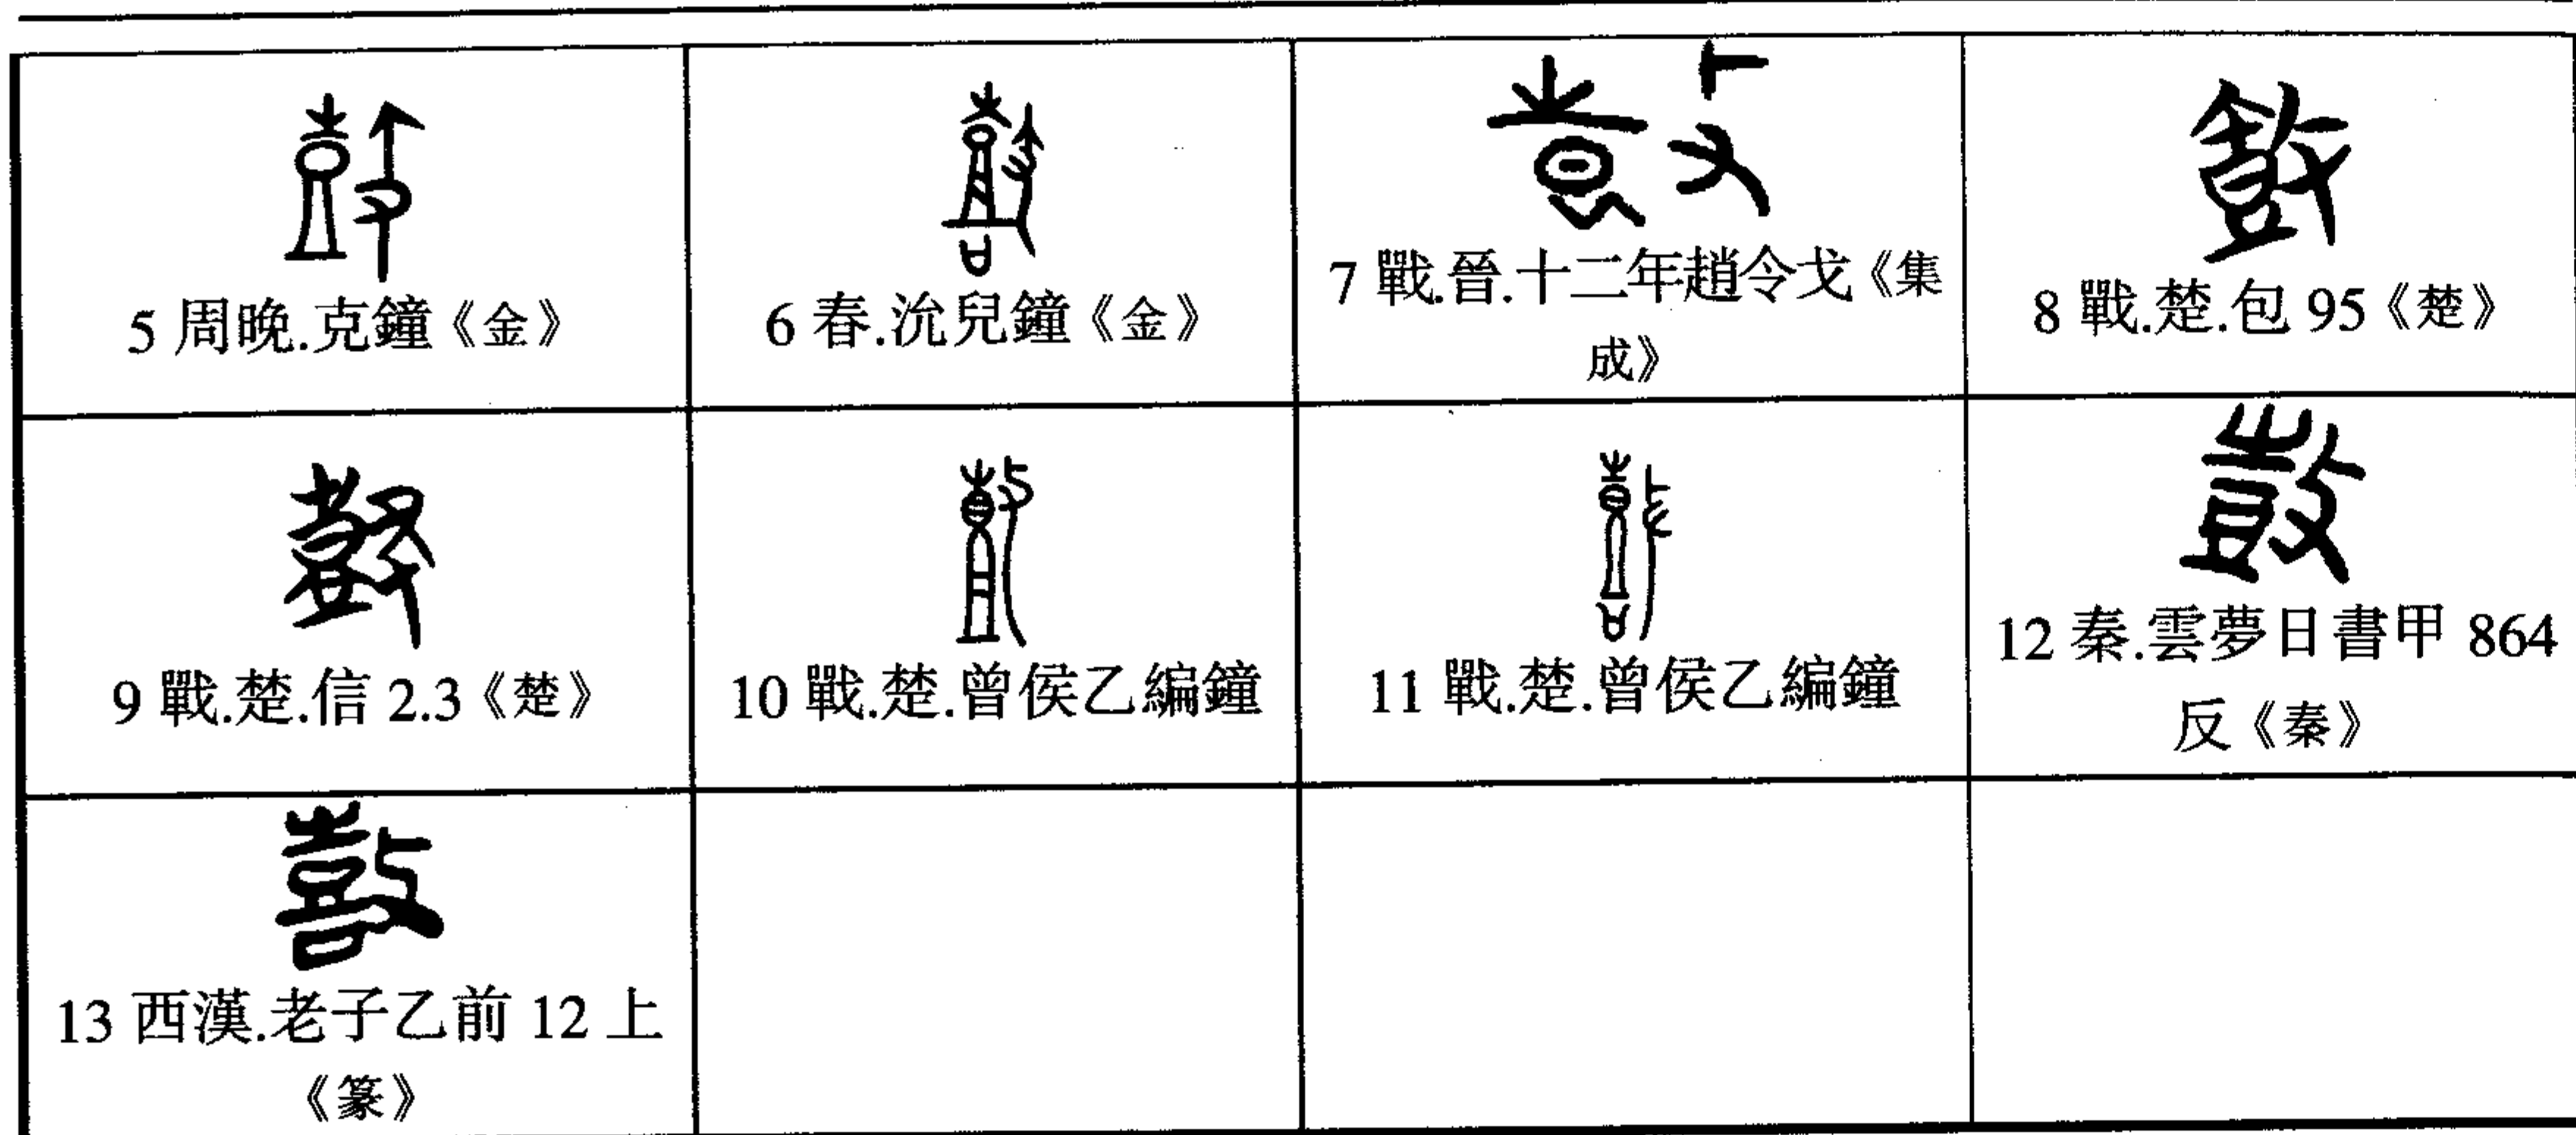 5 周晚.克鐘《金》
6 春.沇兒鐘《金》
7 戰.晉.十二年趙令戈《集
成》
8 戰.楚.包 95《楚》
9 戰.楚.信 2.3《楚》
10 戰.楚.曾侯乙編鐘
11 戰.楚.曾侯乙編鐘
12 秦.雲夢日書甲 864
反《秦》
13 西漢.老子乙前 12 上
《篆》